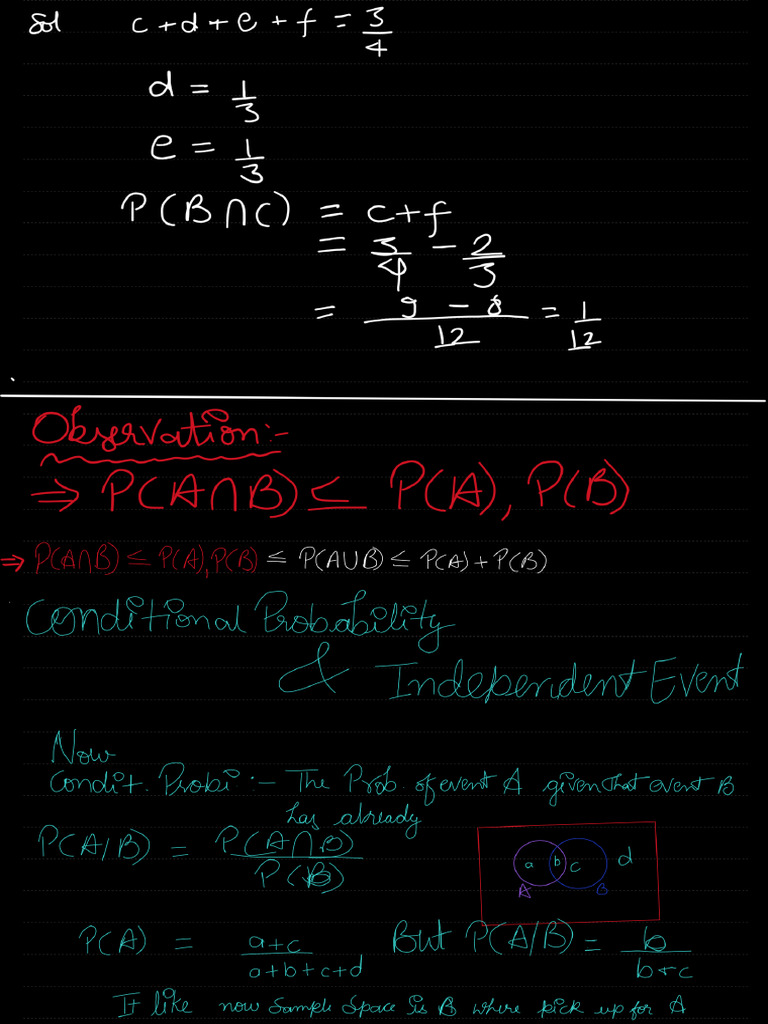 Sol c + d + e + f = 3/4
d = 1/3
e = 1/3
P(B∩C) = c+f
= 3/4 − 2/3
= (9 − 8)/12 = 1/12
Observation:-
⇒ P(A∩B) ≤ P(A), P(B)
⇒ P(A∩B) ≤ P(A), P(B) ≤ P(A∪B) ≤ P(A) + P(B)
Conditional Probability
& Independent Event
Now
Condit. Probi :- The Prob. of event A given that event B
has already
P(A/B) = P(A∩B)/P(B)
a b c d
A B
P(A) = (a+c)/(a+b+c+d) But P(A/B) = b/(b+c)
It like now Sample Space is B where pick up for A